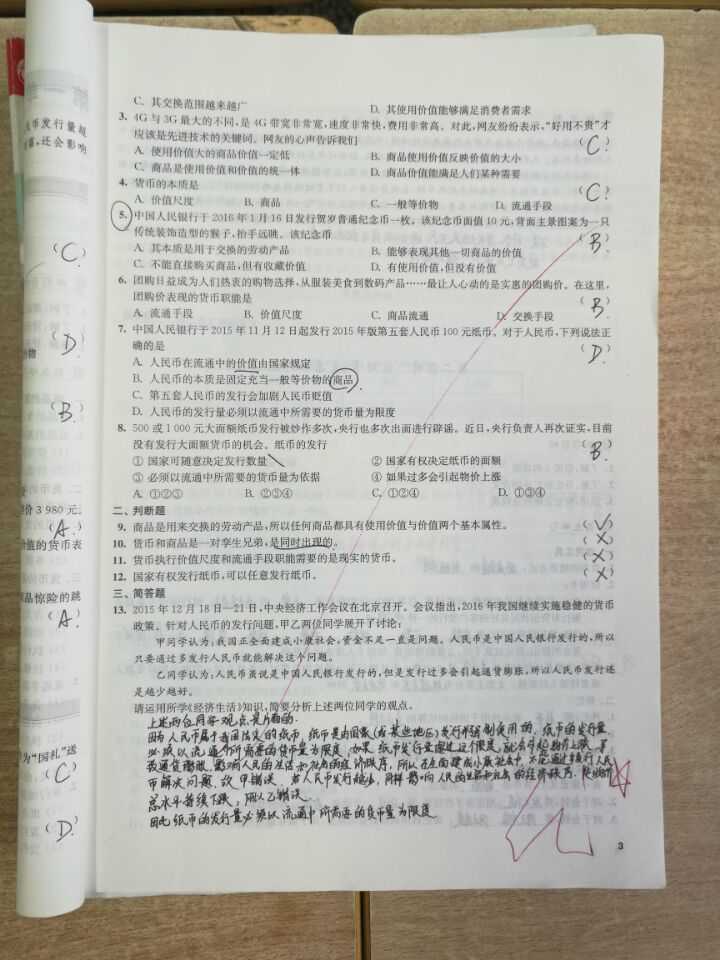 币发行量超
还会影响
(C)
物
(D)
(B.)
价 3 980 元。
(A.)
值的货币表
品惊险的跳
(A.)
为“国礼”送
(C)
(D.)
C. 其交换范围越来越广 D. 其使用价值能够满足消费者需求
3. 4G 与 3G 最大的不同,是 4G 带宽非常宽,速度非常快,费用非常高。对此,网友纷纷表示,“好用不贵”才
应该是先进技术的关键词。网友的心声告诉我们 (C.)
A. 使用价值大的商品价值一定低 B. 商品使用价值反映价值的大小
C. 商品是使用价值和价值的统一体 D. 商品价值能满足人们某种需要
4. 货币的本质是 (C.)
A. 价值尺度 B. 商品 C. 一般等价物 D. 流通手段
5. 中国人民银行于 2016 年 1 月 16 日发行贺岁普通纪念币一枚。该纪念币面值 10 元,背面主景图案为一只
传统装饰造型的猴子,抬手远眺。该纪念币 (B.)
A. 其本质是用于交换的劳动产品 B. 能够表现其他一切商品的价值
C. 不能直接购买商品,但有收藏价值 D. 有使用价值,但没有价值
6. 团购日益成为人们热衷的购物选择,从服装美食到数码产品……最让人心动的是实惠的团购价。在这里,
团购价表现的货币职能是 (B.)
A. 流通手段 B. 价值尺度 C. 商品流通 D. 交换手段
7. 中国人民银行于 2015 年 11 月 12 日起发行 2015 年版第五套人民币 100 元纸币。对于人民币,下列说法正
确的是 (D.)
A. 人民币在流通中的价值由国家规定
B. 人民币的本质是固定充当一般等价物的商品
C. 第五套人民币的发行会加剧人民币贬值
D. 人民币的发行量必须以流通中所需要的货币量为限度
8. 500 或 1 000 元大面额纸币发行被炒作多次,央行也多次出面进行辟谣。近日,央行负责人再次证实,目前
没有发行大面额货币的机会。纸币的发行 (B.)
① 国家可随意决定发行数量 ② 国家有权决定纸币的面额
③ 必须以流通中所需要的货币量为依据 ④ 如果过多会引起物价上涨
A. ①②③ B. ②③④ C. ①②④ D. ①③④
二、判断题
9. 商品是用来交换的劳动产品,所以任何商品都具有使用价值与价值两个基本属性。 (√)
10. 货币和商品是一对孪生兄弟,是同时出现的。 (×)
11. 货币执行价值尺度和流通手段职能需要的是现实的货币。 (×)
12. 国家有权发行纸币,可以任意发行纸币。 (×)
三、简答题
13. 2015 年 12 月 18 日—21 日,中央经济工作会议在北京召开。会议指出,2016 年我国继续实施稳健的货币
政策。针对人民币的发行问题,甲乙两位同学展开了讨论:
甲同学认为:我国正全面建成小康社会,资金不足一直是问题。人民币是中国人民银行发行的,所以
只要通过多发行人民币就能解决这个问题。
乙同学认为:人民币虽说是中国人民银行发行的,但是发行过多会引起通货膨胀,所以人民币发行还
是越少越好。
请运用所学《经济生活》知识,简要分析上述两位同学的观点。
上述两位同学观点是片面的.
因为人民币属于我国法定的纸币,纸币是由国家(或某些地区)发行并强制使用的,纸币的发行量
必须以流通中所需要的货币量为限度,如果纸币发行量超过这个限度,就会引起物价上涨,
通货膨胀,影响人民的生活和社会的经济秩序,所以在全面建成小康社会中,不能通过多发行人民
币解决问题,故甲错误。若人民币发行越少,同样影响人民的生活和社会的经济秩序,使物价
总水平持续下跌,所以乙错误.
因此纸币的发行量必须以流通中所需要的货币量为限度
3